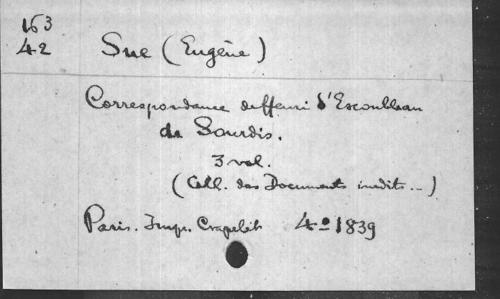 163
42
Sue (Eugène)
Correspondance d'Escoubleau
de Sourdis.
3 vol.
(Coll. des Documents inédits...)
Paris. Impr. Crapelet 4º 1839